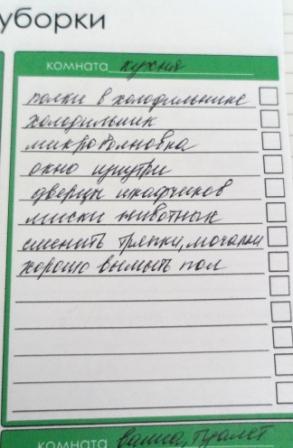 уборки
комната кухня
полки в холодильнике
холодильник
микроволновка
окно внутри
дверцы шкафчиков
миски животных
сменить тряпки, мочалки
хорошо вымыть пол
комната ванна, туалет